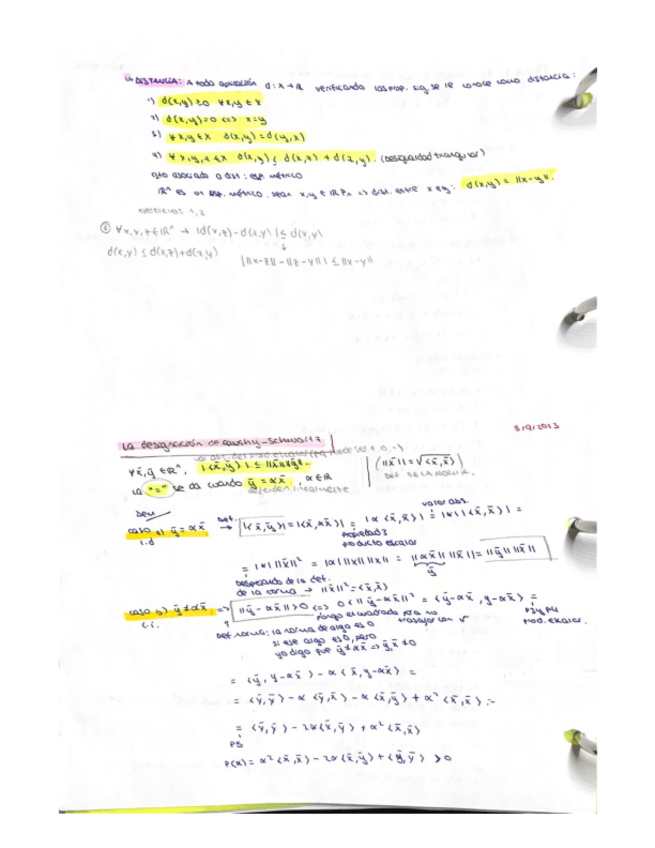 DISTANCIA: A toda aplicación d: X → R verificando las prop. sig. se le conoce como distancia:
1) d(x,y) ≥ 0 ∀x,y ∈ X
2) d(x,y)=0 <=> x=y
3) ∀x,y ∈ X d(x,y)=d(y,x)
4) ∀x,y,z ∈ X d(x,y) ≤ d(x,z) + d(z,y). (Desigualdad triangular)
asociado a dist: esp. métrico
R^n es un esp. métrico, sean x,y ∈ R^n => dist. entre x e y: d(x,y) = ||x-y||.
EJERCICIOS 1,3
∀x,y,z ∈ R^n → |d(x,z)-d(z,y)| ≤ d(x,y)
d(x,y) ≤ d(x,z)+d(z,y)
| ||x-z|| - ||z-y|| | ≤ ||x-y||
La desigualdad de Cauchy-Schwartz
∀x̄,ȳ ∈ R^n, |<x̄,ȳ>| ≤ ||x̄|| ||ȳ||.
(||x̄|| = √<x̄,x̄>)
DEF. DE LA NORMA.
La "=" se da cuando ȳ = αx̄, α ∈ R
dependen linealmente
Dem
valor abs.
caso a) ȳ = αx̄ → |<x̄,ȳ>| = |<x̄,αx̄>| = |α<x̄,x̄>| = |α| |<x̄,x̄>| =
l.d
Def.
Propiedad 3
producto escalar
= |α| ||x̄||² = |α| ||x|| ||x|| = ||αx̄|| ||x̄|| = ||ȳ|| ||x̄||
ȳ
Despejando de la def.
de la norma → ||x̄||² = <x̄,x̄>
caso b) ȳ ≠ αx̄ => ||ȳ-αx̄|| > 0 <=> 0 < ||ȳ-αx̄||² = <ȳ-αx̄, y-αx̄> =
l.i.
pongo el cuadrado para no trabajar con √
P3 y P4
prod. escalar.
Def norma: la norma de algo es 0
si ese algo es 0, pero
yo digo que ȳ ≠ αx̄
= <ȳ, y-αx̄> - α<x̄, y-αx̄> =
= <ȳ,ȳ> - α<ȳ,x̄> - α<x̄,ȳ> + α²<x̄,x̄> =
= <ȳ,ȳ> - 2α<x̄,ȳ> + α²<x̄,x̄>
P5
P(α) = α²<x̄,x̄> - 2α<x̄,ȳ> + <ȳ,ȳ> > 0